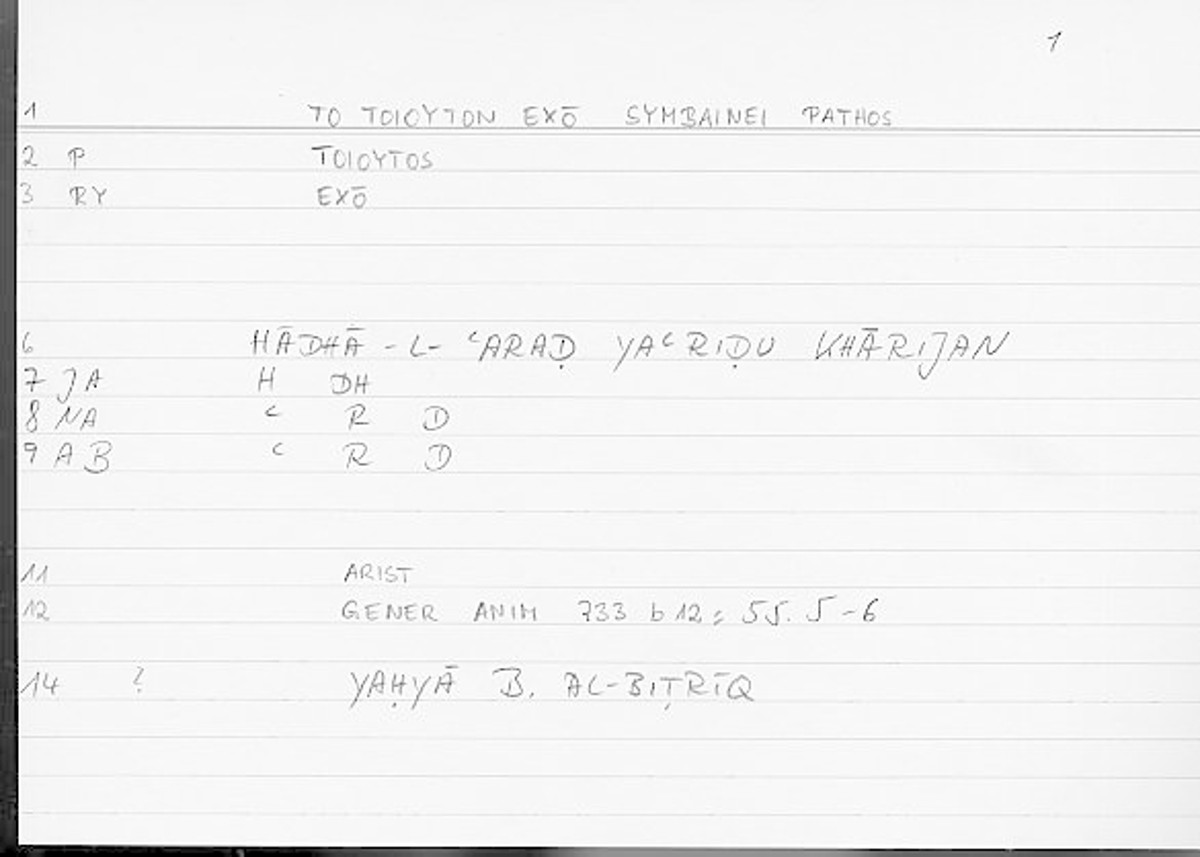 1
1 TO TOIOYTON EXŌ SYMBAINEI PATHOS
2 P TOIOYTOS
3 RY EXŌ
6 HĀDHĀ-L-ʿARAḌ YAʿRIḌU KHĀRIJAN
7 JA H DH
8 NA ʿ R D
9 AB ʿ R D
11 ARIST
12 GENER ANIM 733 b 12; 55. 5-6
14 ? YAḤYĀ B. AL-BIṬRĪQ